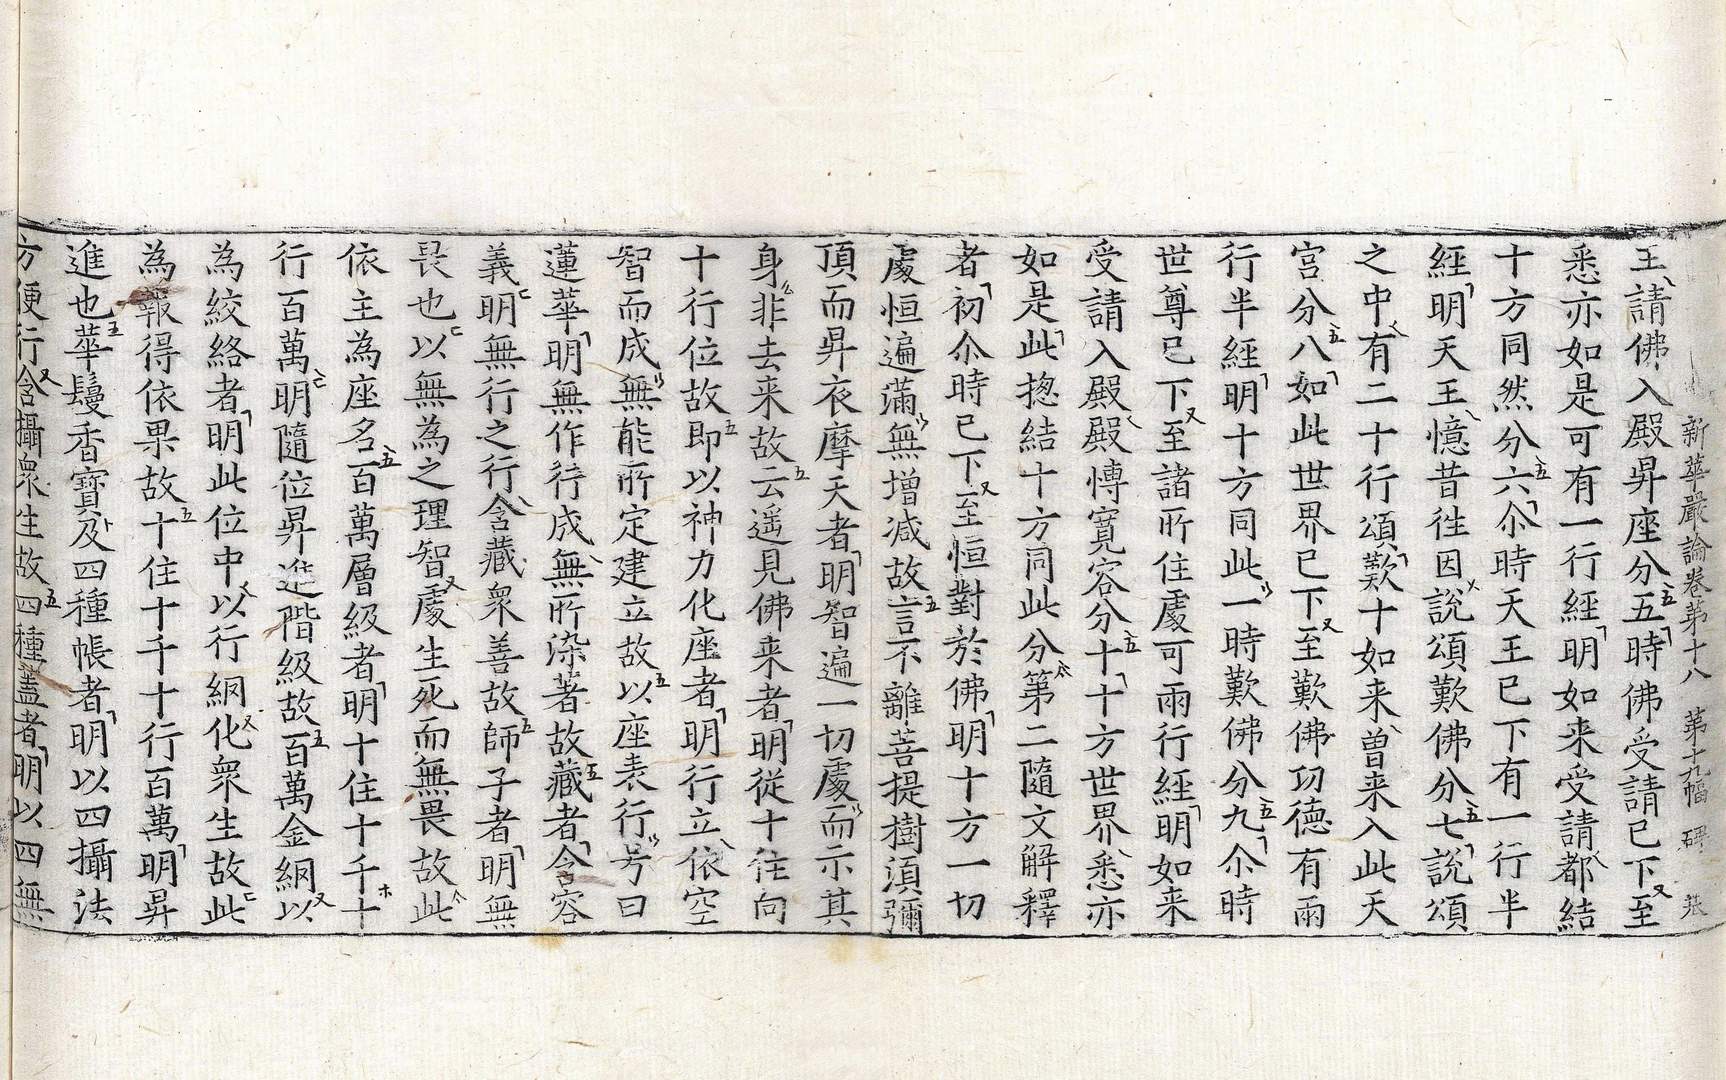 新華嚴論卷第十八　第十九幅　碑
王請佛入殿昇座分五時佛受請已下至
悉亦如是可有一行經明如来受請都結
十方同然分六尒時天王已下有一行半
經明天王憶昔徃因說頌歎佛分七說頌
之中有二十行頌歎十如来曾来入此天
宮分八如此世界已下至歎佛功德有兩
行半經明十方同此一時歎佛分九尒時
世尊已下至諸所住處可兩行經明如来
受請入殿殿博寬容分十十方世界悉亦
如是此揔結十方同此分第二隨文解釋
者初尒時已下至恒對於佛明十方一切
處恒遍滿無增减故言不離菩提樹須彌
頂而昇夜摩天者明智遍一切處而示其
身非去来故云遥見佛来者明從十住向
十行位故即以神力化座者明行立依空
智而成無能所定建立故以座表行号曰
蓮華明無作行行成無所染著故藏者含容
義明無行之行含藏衆善故師子者明無
畏也以無為之理智處生死而無畏故此
依主為座名百萬層級者明十住十千十
行百萬明隨位昇進階級故百萬金網以
為絞絡者明此位中以行網化衆生故此
為報得依果故十住十千十行百萬明昇
進也華鬘香寶及四種帳者明以四攝法
方便行含攝衆生故四種蓋者明以四無